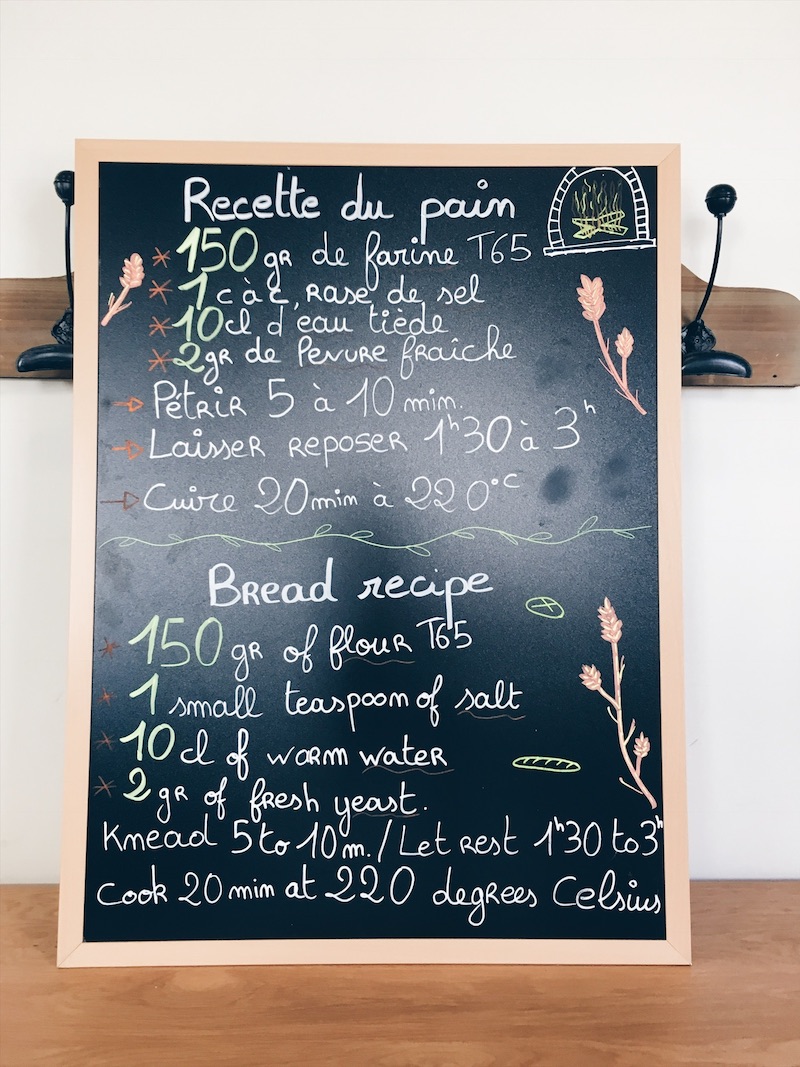 Recette du pain
* 150 gr de farine T65
* 1 c à c, rase de sel
* 10 cl d'eau tiède
* 2 gr de levure fraîche
→ Pétrir 5 à 10 min.
→ Laisser reposer 1h30 à 3h
→ Cuire 20 min à 220°C
Bread recipe
* 150 gr of flour T65
* 1 small teaspoon of salt
* 10 cl of warm water
* 2 gr of fresh yeast.
Knead 5 to 10 m. / Let rest 1h30 to 3h
Cook 20 min at 220 degrees Celsius